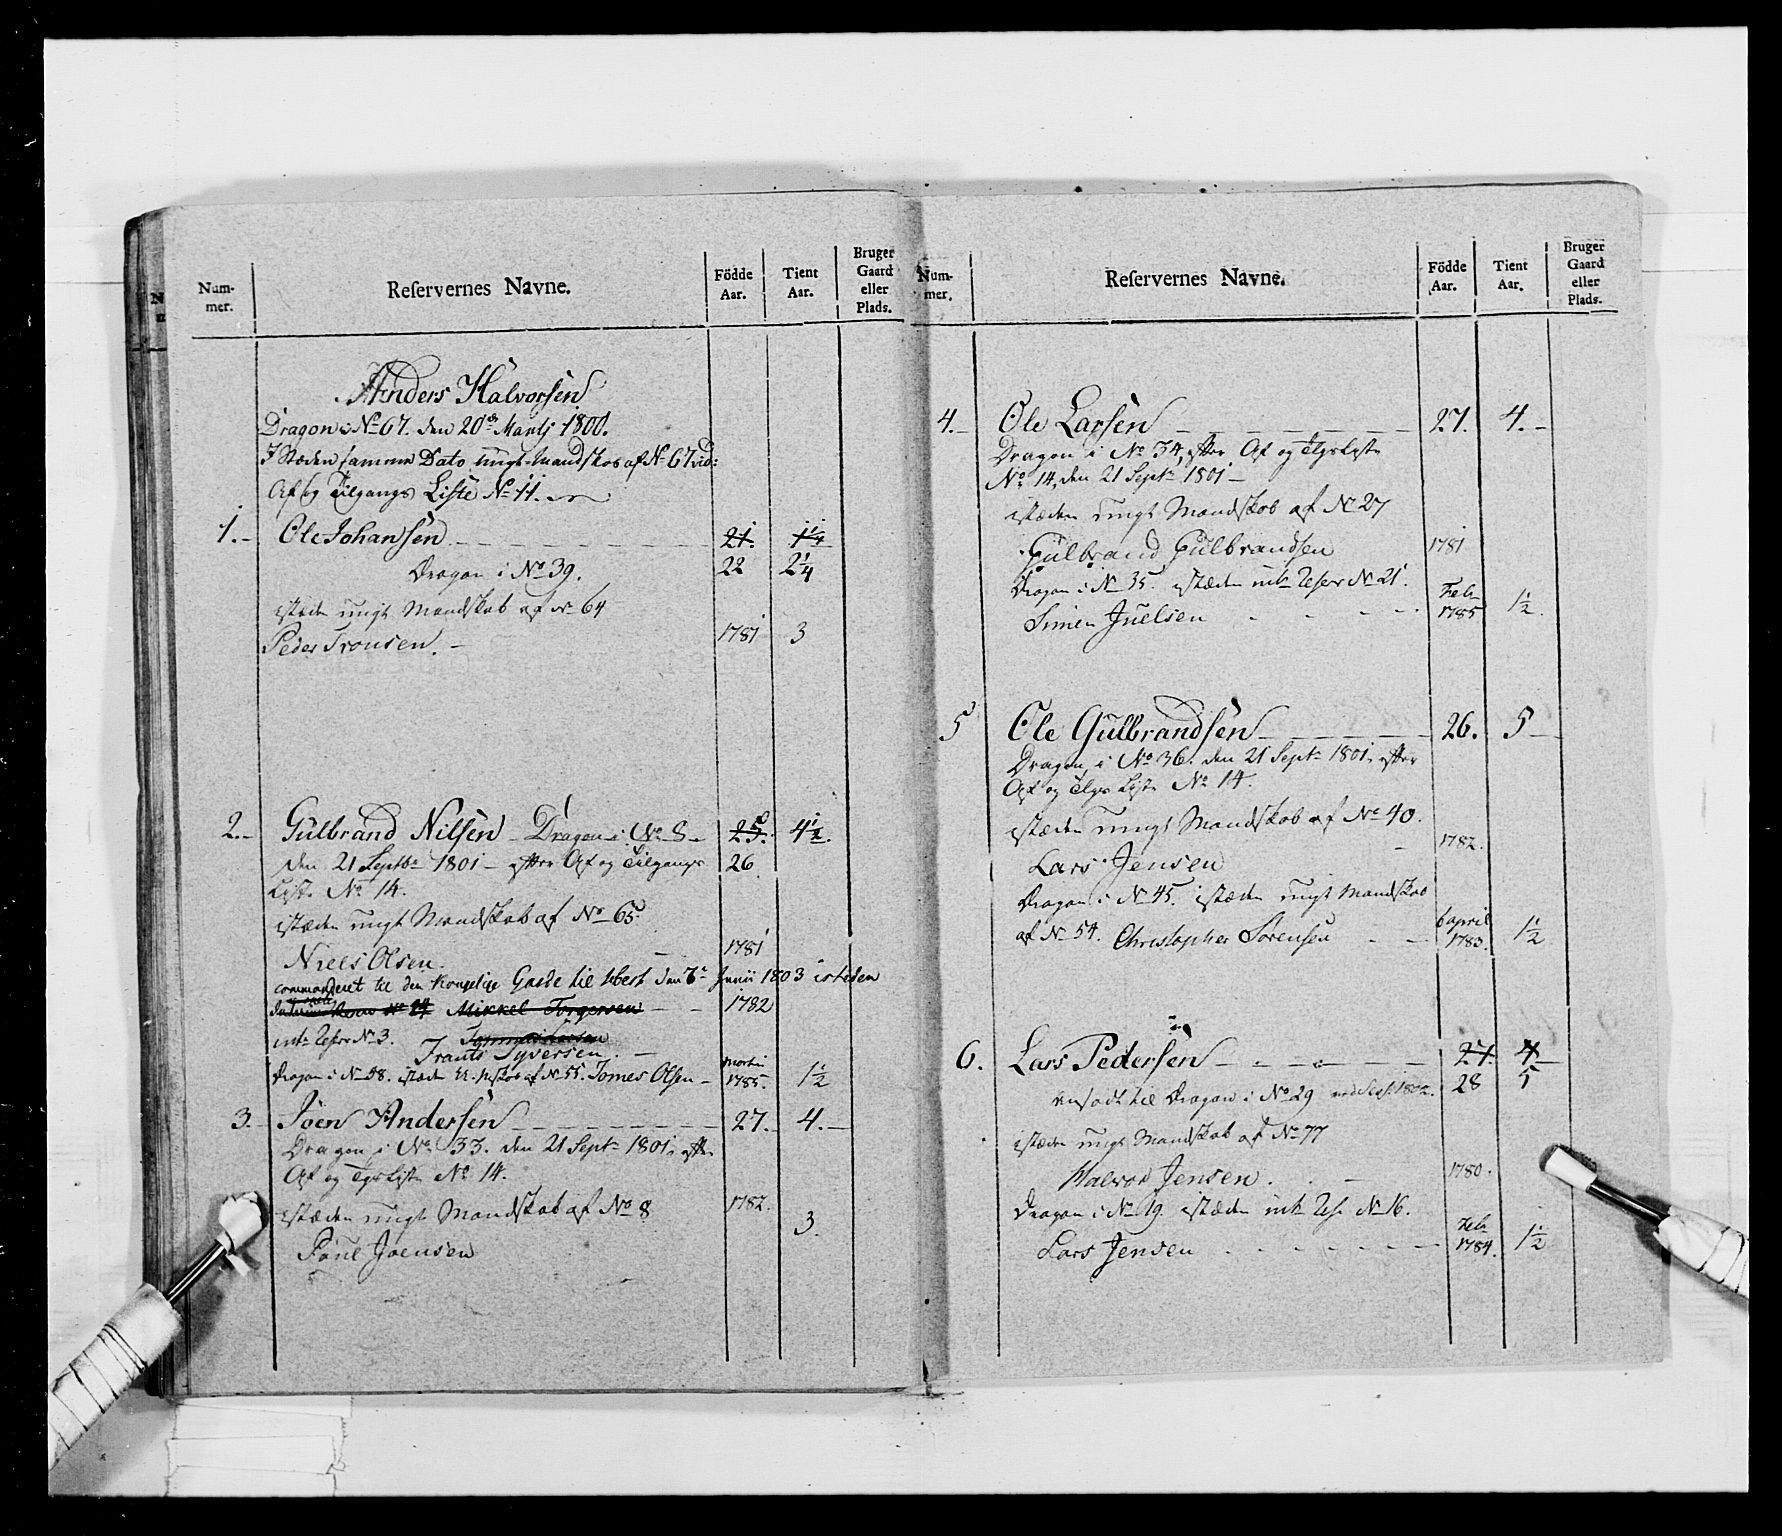 Num-
mer.
Reservernes Navne.
Födde
Aar.
Tient
Aar.
Bruger
Gaard
eller
Plads.
Anders Halvorsen
Dragon No 67. den 20de Martj 1800.
I Stæden samme Dato ungt Mandskab af No 67 vid:
Af og Tilgangs Liste No 11.
1. Ole Johansen 21. 1 1/4
Dragon i No 39. 22 2 1/4
istæden ungt Mandskab af No 64
Peder Tronsen. 1781 3
2. Gulbrand Nilsen Dragon i No 8 25. 4 1/2.
den 21 Septbr 1801 efter Af og Tilgangs 26
Liste No 14.
istæden ungt Mandskab af No 65
Niels Olsen. 1781
commanderet til den Kongelige Garde til Hest den 7de Junii 1803 isteden
Mikkel Torgersen 1782
No 3.
Frants Syversen.
Dragon i No 58. istæden U. Mskab af No 55. Tomes Olsen Martii 1785. 1 1/2
3. Joen Andersen 27. 4.
Dragon i No 33. den 21 Septr 1801, efter
Af og Tgs Liste No 14.
istæden ungt Mandskab af No 8 1782. 3.
Poul Joensen
Num-
mer.
Reservernes Navne.
Födde
Aar.
Tient
Aar.
Bruger
Gaard
eller
Plads.
4. Ole Larsen 27. 4.
Dragon i No 34, efter Af og Tgs Liste
No 14, den 21 Septr 1801
istæden ungt Mandskab af No 27
Gulbrand Gulbrandsen 1781
Dragon i No 35. istæden No 21.
Simen Juelsen Febr 1785 1 1/2.
5 Ole Gulbrandsen 26. 5
Dragon i No 36. den 21 Septr 1801, efter
Af og Tlgs Liste No 14.
istæden ungt Mandskab af No 40.
Lars Jensen 1782.
Dragon i No 45. istæden ungt Mandskab
af No 54. Christopher Sorensen 6 april 1783. 1 1/2
6. Lars Pedersen 27 4
ansadt til Dragon i No 29 ved Sess: 1802. 28 5
istæden ungt Mandskab af No 77
Halvor Jensen. 1780.
Dragon i No 19 istæden No 16.
Lars Jensen Febr 1784. 1 1/2